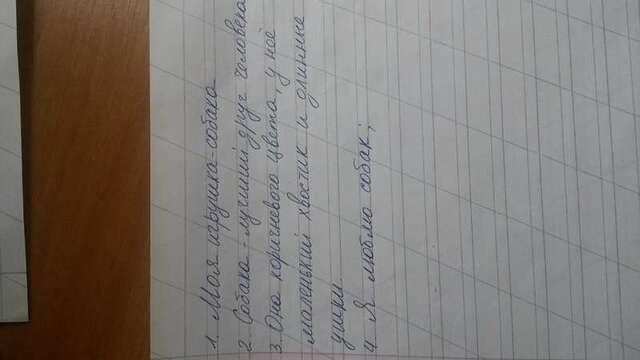 1. Моя игрушка-собака
2. Собака - лучший друг человека
3. Она коричневого цвета, у неё
маленький хвостик и длинные
ушки.
4. Я люблю собак;